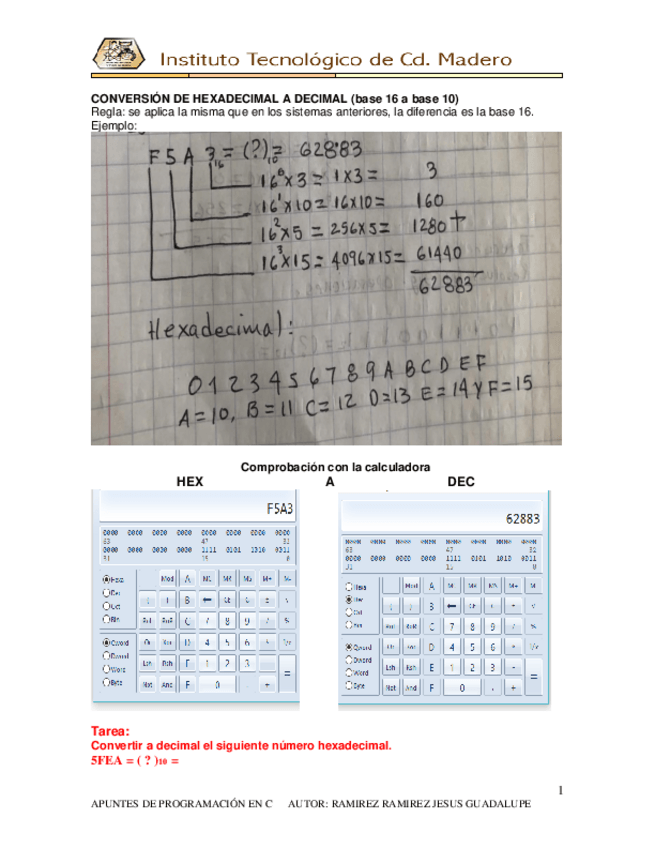 Instituto Tecnológico de Cd. Madero
CONVERSIÓN DE HEXADECIMAL A DECIMAL (base 16 a base 10)
Regla: se aplica la misma que en los sistemas anteriores, la diferencia es la base 16.
Ejemplo:
F5A3₁₆ = (?)₁₀ = 62883
16⁰x3 = 1x3 = 3
16¹x10 = 16x10 = 160
16²x5 = 256x5 = 1280 +
16³x15 = 4096x15 = 61440
62883
Hexadecimal:
0 1 2 3 4 5 6 7 8 9 A B C D E F
A=10, B=11 C=12 D=13 E=14 y F=15
Comprobación con la calculadora
HEX A DEC
F5A3
0000 0000 0000 0000 0000 0000 0000 0000
63 47 32
0000 0000 0000 0000 1111 0101 1010 0011
31 15 0
Hexa Mod A
Dec B
Oct RoL RoR C 7 8 9 / %
Bin
Qword D 4 5 6 * 1/x
Dword Lsh Rsh E 1 2 3 - =
Word
Byte Not And F 0 . +
62883
0000 0000 0000 0000 0000 0000 0000 0000
63 47 32
0000 0000 0000 0000 1111 0101 1010 0011
31 15 0
Hexa Mod A
Dec B
Oct RoL RoR C 7 8 9 / %
Bin
Qword D 4 5 6 * 1/x
Dword Lsh Rsh E 1 2 3 - =
Word
Byte Not And F 0 . +
Tarea:
Convertir a decimal el siguiente número hexadecimal.
5FEA = ( ? )₁₀ =
1
APUNTES DE PROGRAMACIÓN EN C AUTOR: RAMIREZ RAMIREZ JESUS GUADALUPE